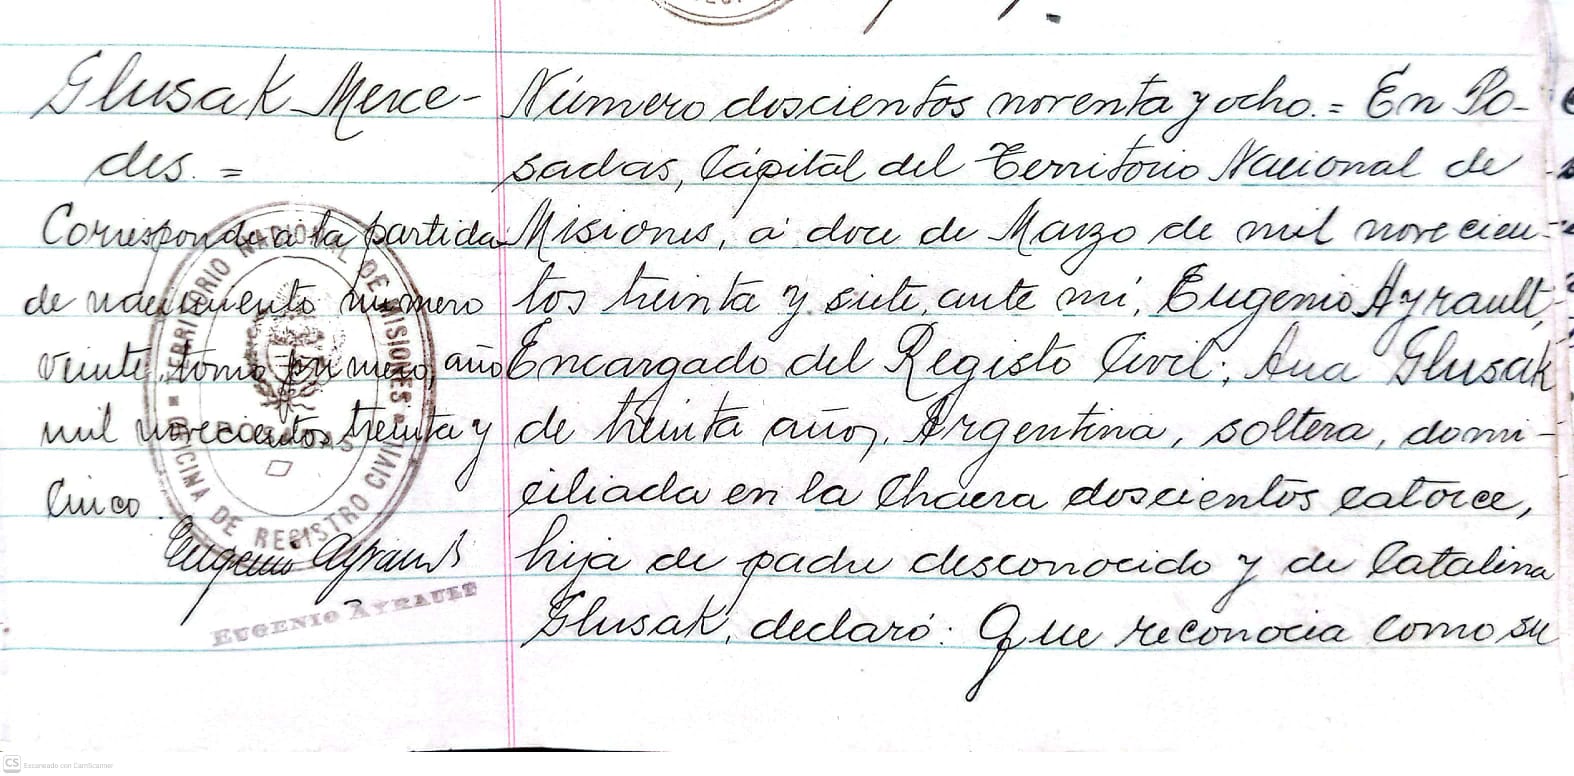 Glusak Merce-
des. =
Corresponde a la partida
de nacimiento número
veinte, tomo primero, año
mil novecientos treinta y
cinco.
Eugenio Ayrault
EUGENIO AYRAULT
TERRITORIO NACIONAL DE MISIONES
OFICINA DE REGISTRO CIVIL
POSADAS
Número doscientos noventa y ocho. = En Po-
sadas, Cápital del Territorio Nacional de
Misiones, á doce de Marzo de mil novecien-
tos treinta y siete, ante mí, Eugenio Ayrault,
Encargado del Registo Civil; Ana Glusak
de treinta años, Argentina, soltera, domi-
ciliada en la Chacra doscientos catorce,
hija de padre desconocido y de Catalina
Glusak, declaró: Que reconocia como su
CS Escaneado con CamScanner